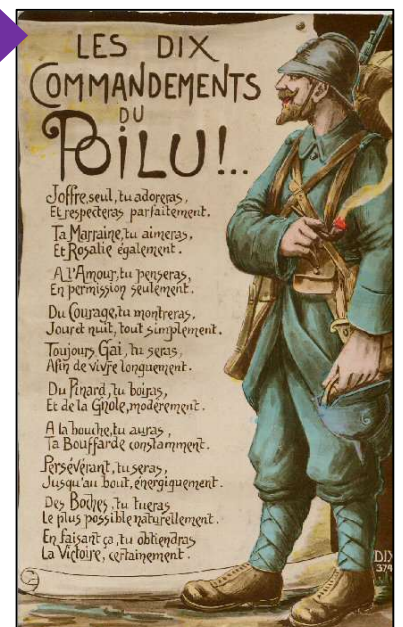 LES DIX
COMMANDEMENTS
DU
POILU!..
Joffre, seul, tu adoreras,
Et respecteras parfaitement.
Ta Marraine, tu aimeras,
Et Rosalie également.
A l'Amour, tu penseras,
En permission seulement.
Du Courage, tu montreras,
Jour et nuit, tout simplement.
Toujours Gai, tu seras,
Afin de vivre longuement.
Du Pinard, tu boiras,
Et de la Gnole, modérément.
A la bouche, tu auras,
Ta Bouffarde constamment.
Persévérant, tu seras,
Jusqu'au bout, énergiquement.
Des Boches, tu tueras
Le plus possible naturellement.
En faisant ça, tu obtiendras
La Victoire, certainement.
DIX
374